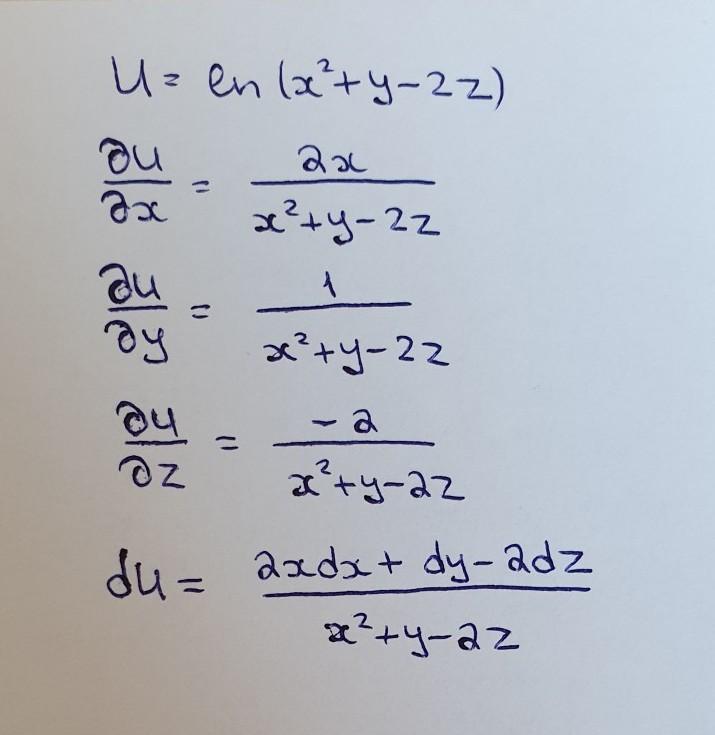 U = ln (x²+y-2z)
∂u/∂x = 2x/(x²+y-2z)
∂u/∂y = 1/(x²+y-2z)
∂u/∂z = -2/(x²+y-2z)
du = (2xdx + dy-2dz)/(x²+y-2z)